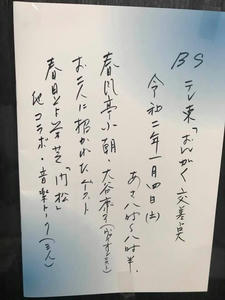 BSテレ東「おんがく交差点」
令和二年一月四日(土)
あさ八時〜八時半
春風亭小朝・大谷康子
お二人に招かれたゲスト
春日とよ芝
他コラボ・音楽トーク